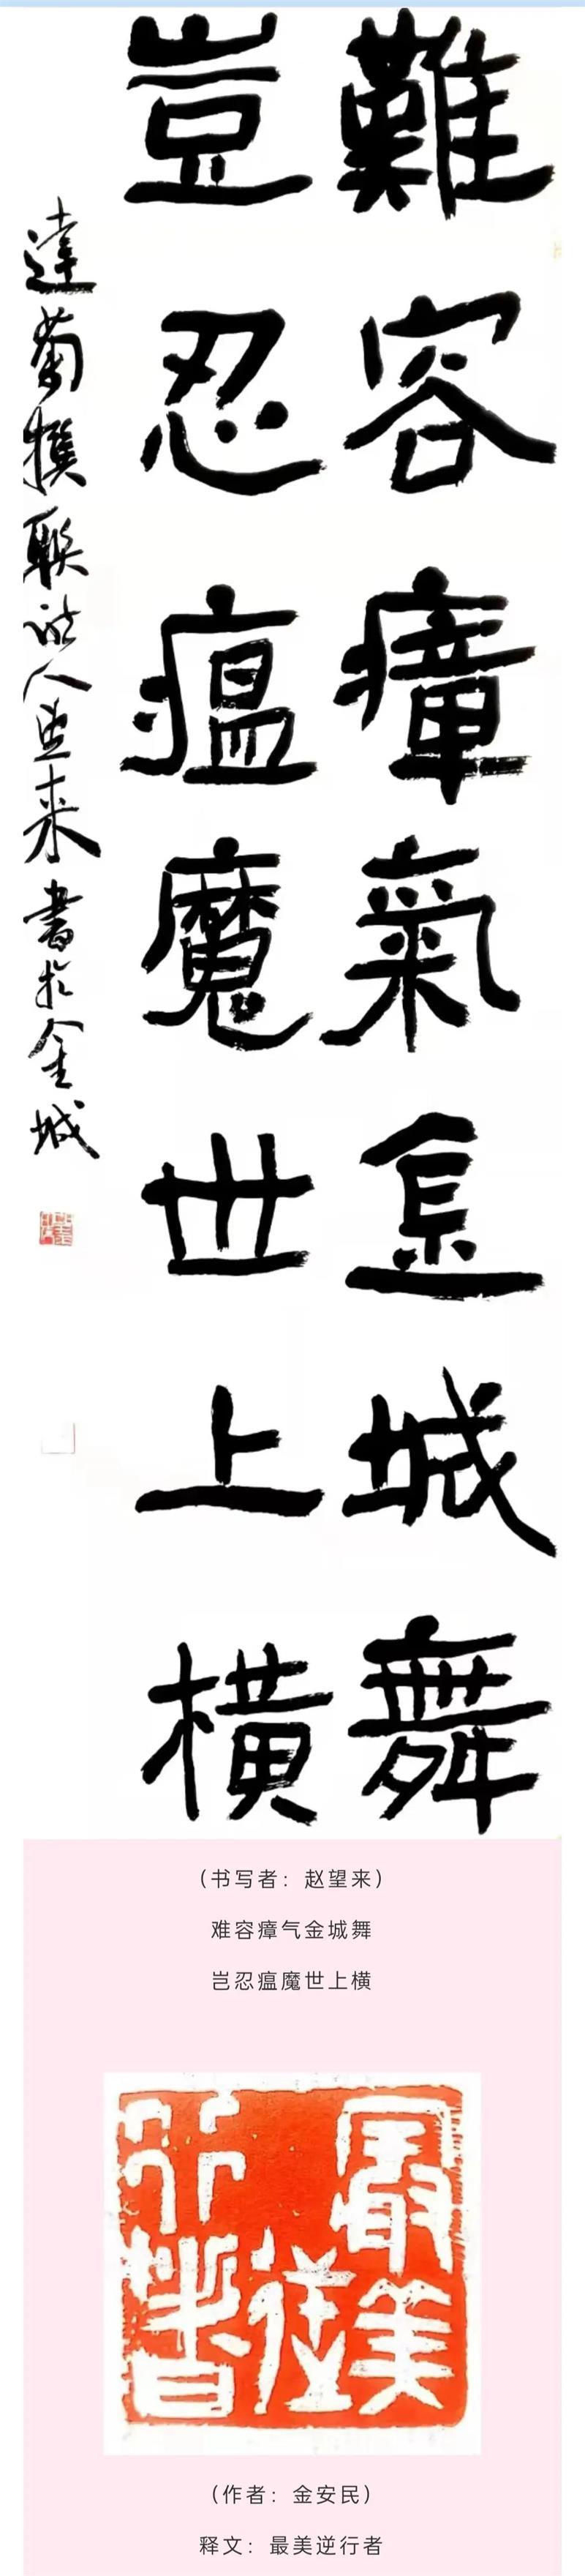 難容瘴氣金城舞
豈忍瘟魔世上横
達菊撰聯
人 来書於金城
(书写者：赵望来)
难容瘴气金城舞
岂忍瘟魔世上横
最美逆行者
(作者：金安民)
释文：最美逆行者